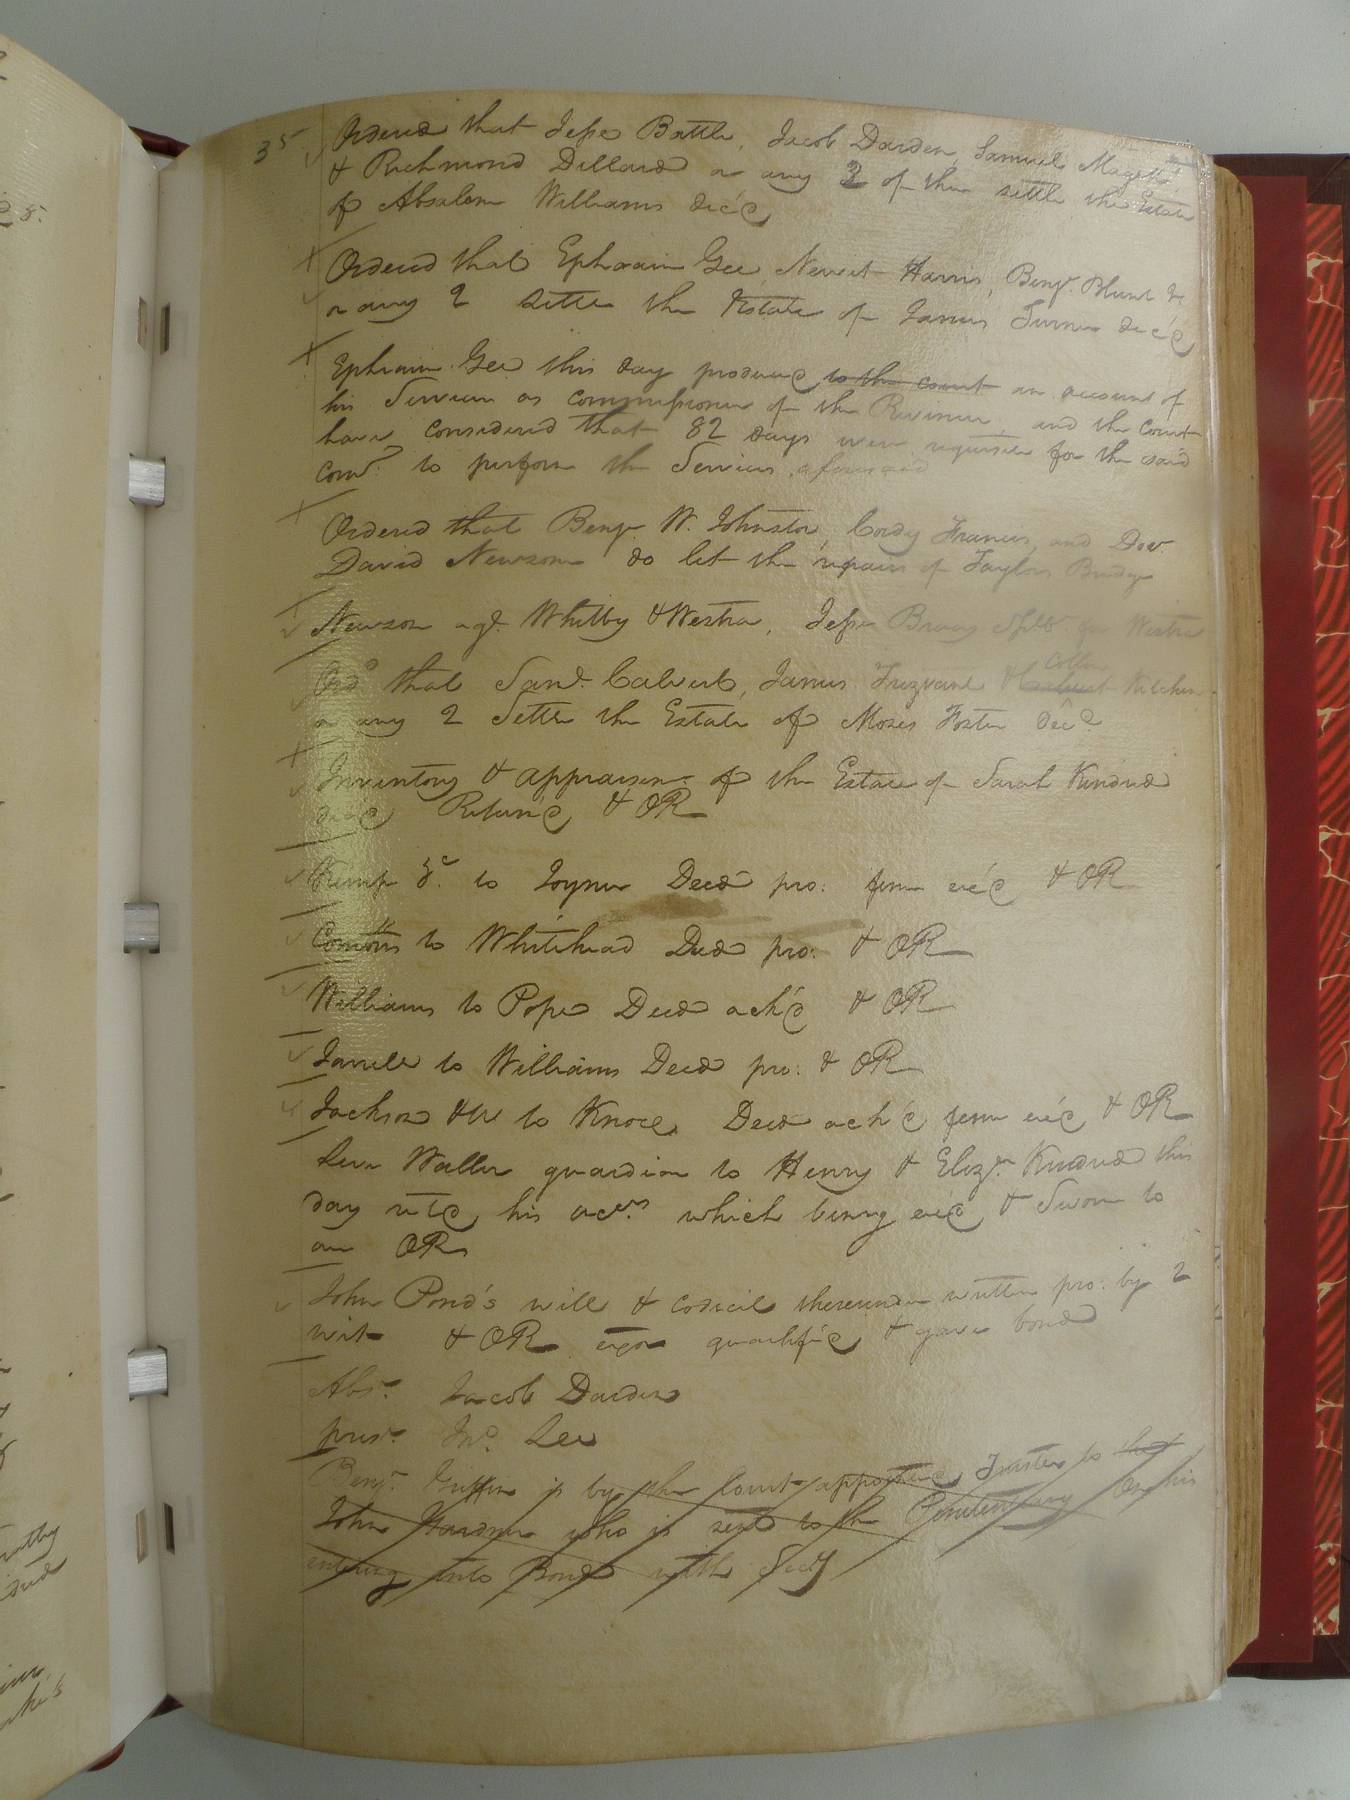 35
Ordered that Jesse Battle, Jacob Darden, Samuel Magett
& Richmond Dillard or any 3 of them settle the Estate
of Absalom Williams dec'd
Ordered that Ephraim Gee, Newit Harris, Benj. Blunt &c
or any 2 settle the Estate of James Turner dec'd
Ephraim Gee this day produced to the court an account of
his Services as commissioner of the Revenue, and the Court
have considered that 82 days were requisite for the said
comr. to perform the Services aforesaid
Ordered that Benj. W. Johnston, Cordy Francis, and
David Newsom do let the repairs of Taylors Bridge
Newsom agt. Whitby & Westra, Jesse
Ord. that Saml. Calvert, James Trezvant & Kitchen
or any 2 Settle the Estate of Moses Foster Dec'd
Inventory & appraisemt. of the Estate of Sarah Kindred
dec'd Return'd & OR
Kemp &c. to Joyner Deed pro. feme ex'd & OR
to Whitehead Deed pro: & OR
Williams to Pope Deed ack'd & OR
Jarrell to Williams Deed pro: & OR
Jackson & W to Deed ack'd feme ex'd & OR
Waller guardian to Henry & Eliza. Kindred this
day ret'd his accts. which being ex'd & Sworn to
are OR
John Pond's will & codicil thereunder written pro. by 2
wit & OR exor qualified & gave bond
Abs. Jacob Darden
pres. Jno. Lee
Benj. Griffin is by the Court appointed Trustee to that
John Gardner who is sent to the Penitentiary On his
entering into Bond with Secy